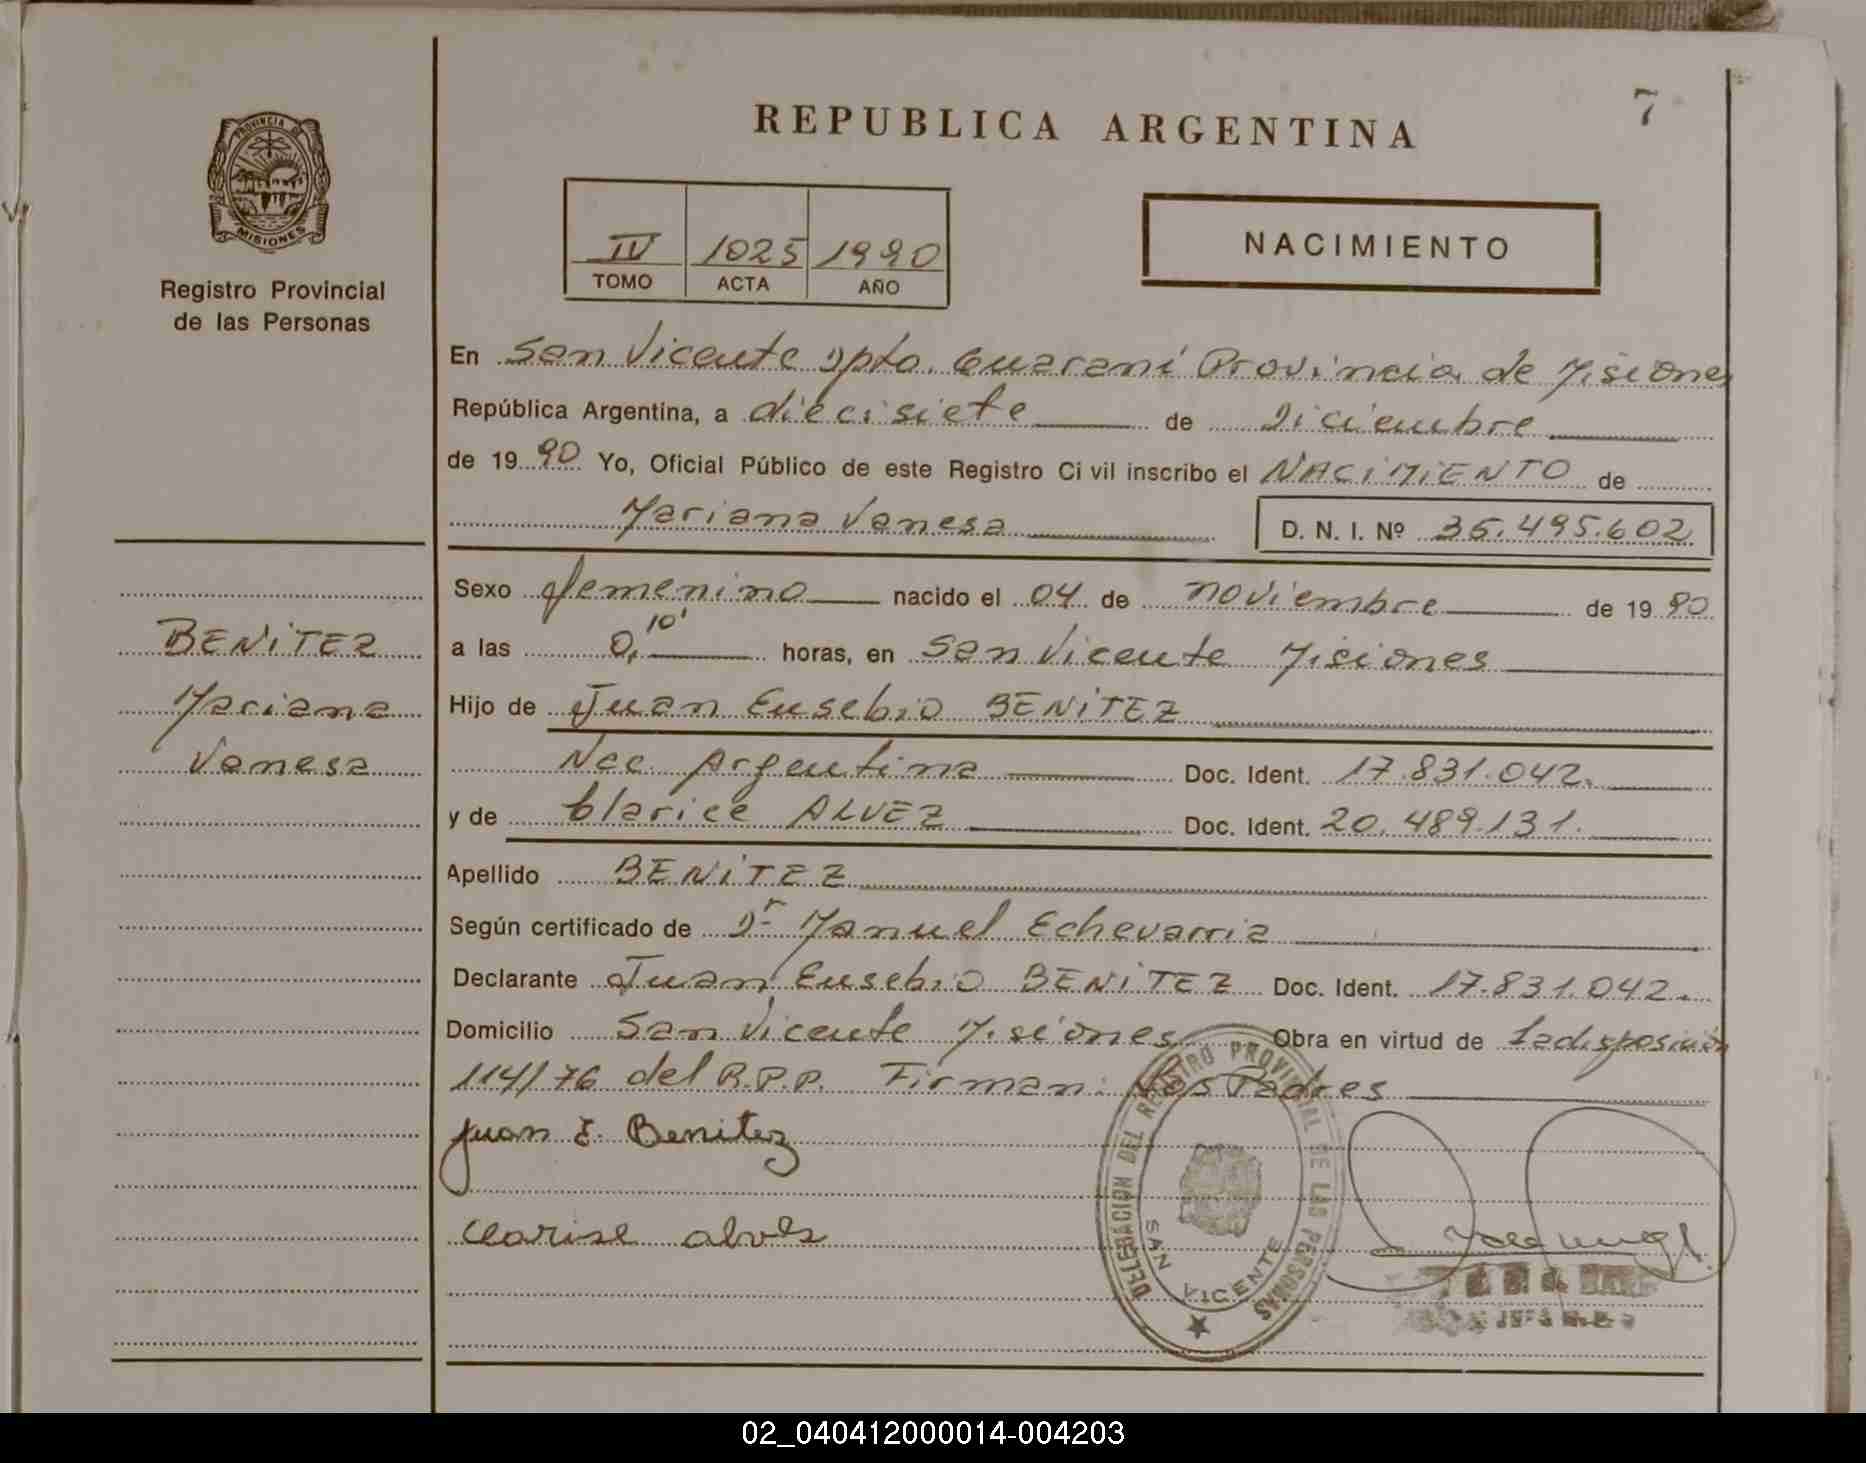 7
REPUBLICA ARGENTINA
PROVINCIA DE
MISIONES
Registro Provincial
de las Personas
IV 1025 1990
TOMO ACTA AÑO
NACIMIENTO
En San Vicente Dpto. Guaraní Provincia de Misiones
República Argentina, a diecisiete de Diciembre
de 1990 Yo, Oficial Público de este Registro Civil inscribo el NACIMIENTO de
Mariana Vanesa D. N. I. Nº 35.495.602
Sexo femenino nacido el 04 de noviembre de 1990
a las 0,10' horas, en San Vicente Misiones
Hijo de Juan Eusebio BENITEZ
Nac. Argentina Doc. Ident. 17.831.042.
y de Clarice ALVEZ Doc. Ident. 20.489.131.
Apellido BENITEZ
Según certificado de Dr Manuel Echevarria
Declarante Juan Eusebio BENITEZ Doc. Ident. 17.831.042.
Domicilio San Vicente Misiones Obra en virtud de la disposición
114/76 del R.P.P. Firman: los Padres
Juan E. Benitez
Clarise alves
BENITEZ
Mariana
Vanesa
DELEGACION DEL REGISTRO PROVINCIAL DE LAS PERSONAS
SAN VICENTE
02_040412000014-004203